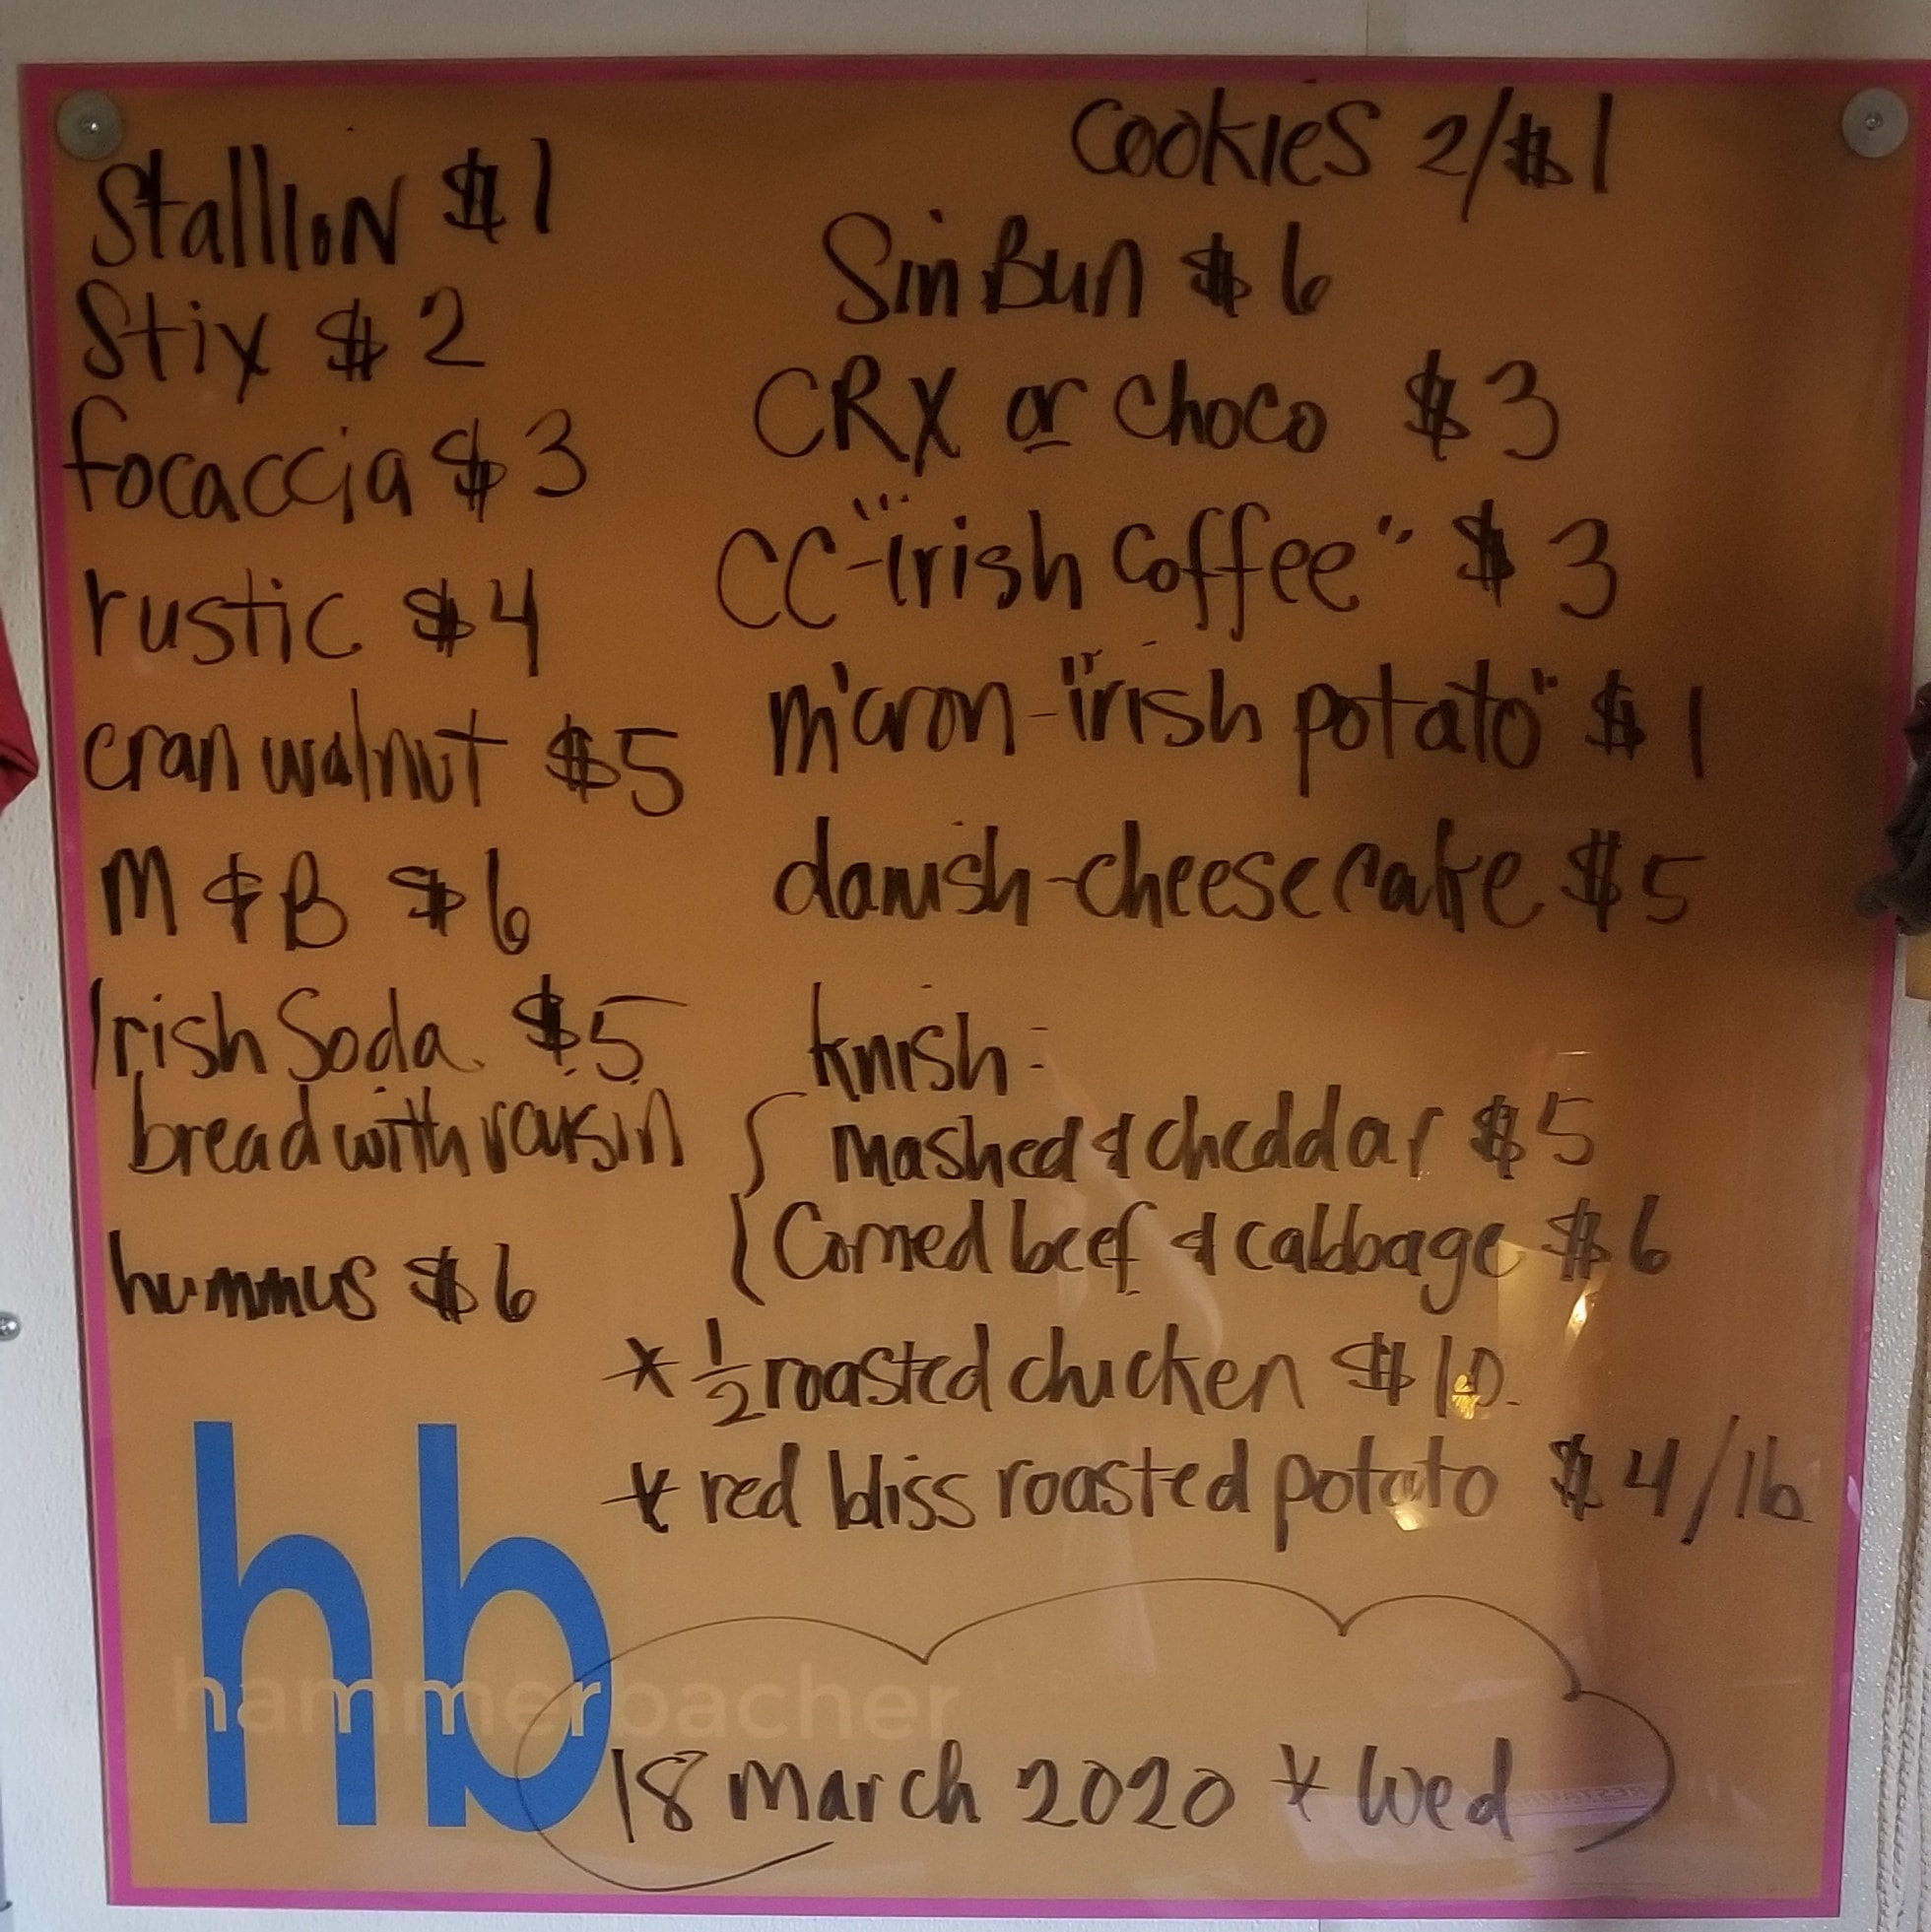 Stallion $1
Stix $2
focaccia $3
rustic $4
cran walnut $5
M & B $6
Irish Soda $5
bread with raisin
hummus $6
Cookies 2/$1
Sin Bun $6
CRX or choco $3
CC-"Irish Coffee" $3
m'cron-"irish potato" $1
danish-cheesecake $5
knish-
mashed & cheddar $5
Corned beef & cabbage $6
* 1/2 roasted chicken $10
* red bliss roasted potato $4/lb
hb
hammerbacher
18 March 2020 * Wed